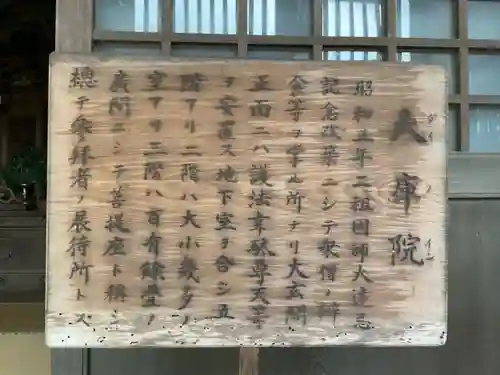 大庫院
ダイ
ク
イン
昭和五年二祖国師大遠忌
記念改築ニシテ衆僧ノ辨
食等ヲ掌ル所ナリ大玄関
正面ニハ護法韋駄尊天等
ヲ安置ス地下室ヲ合シ五
階アリ二階ハ大小幾多ノ
室アリ三階ハ百有餘畳ノ
廣間ニシテ菩提座ト稱シ
總テ參拝者ノ展待所トス